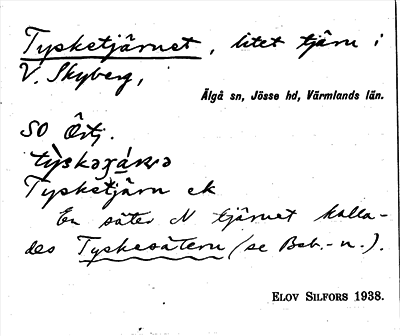 Tysketjärnet, litet tjärn i
V. Skyberg,
Älgå sn, Jösse hd, Värmlands län.
SO Östj.
Tysketjärn ek
En säter N tjärnet kalla-
des Tyskesätern (se Beb.-n.).
ELOV SILFORS 1938.